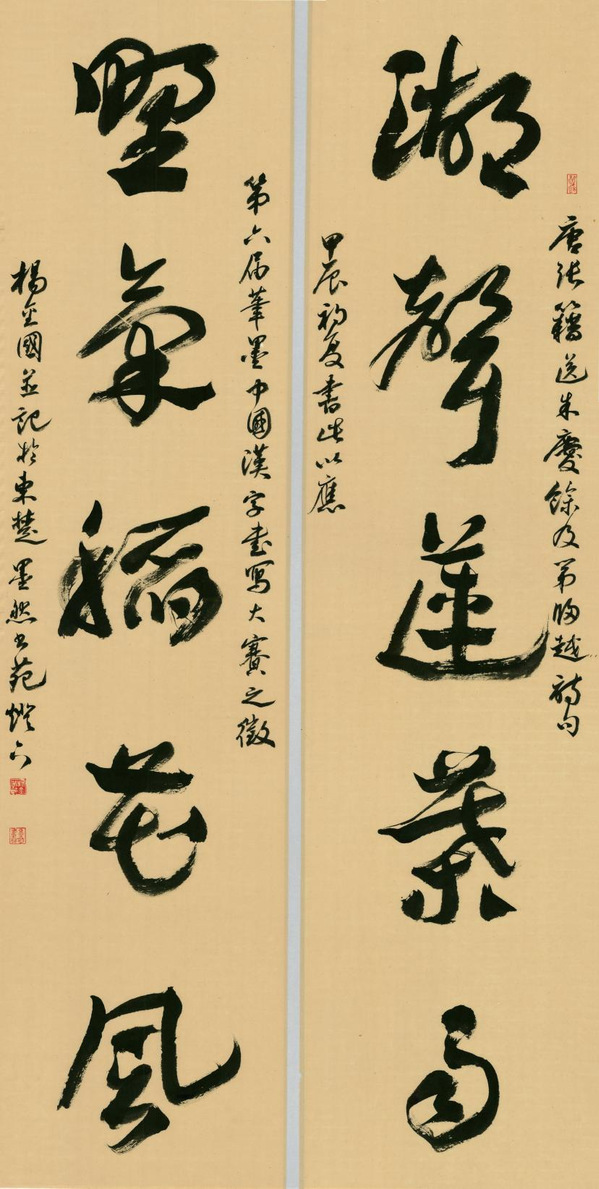 唐張籍送朱慶餘及第歸越詩句
湖聲蓮葉雨
甲辰初夏書此以應
第六屆筆墨中國漢字書寫大賽之徵
野氣稻花風
楊金國並記於東楚墨然書苑燈下